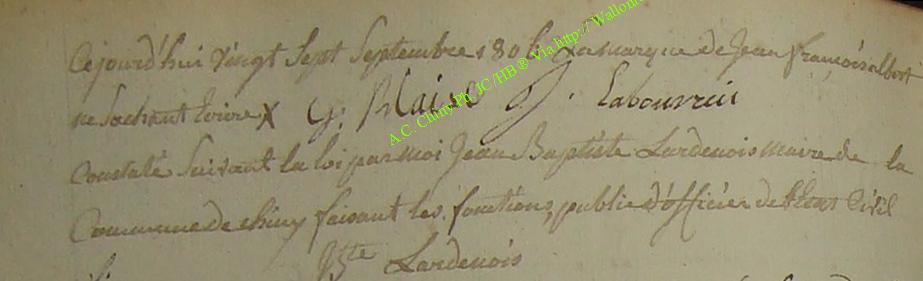 Cejourd'hui vingt sept septembre 1806 La marque de Jean françois albert
ne sachant Ecrire X G. Blaise J. Labouvrui
Constaté suivant la loi par moi Jean Baptiste Lardenois maire de la
Commune de chiny faisant les fonctions public d'officier de l'Etat Civil
Bste Lardenois
A.C. Chiny Ph. JC /HB @ Via http://Wallon